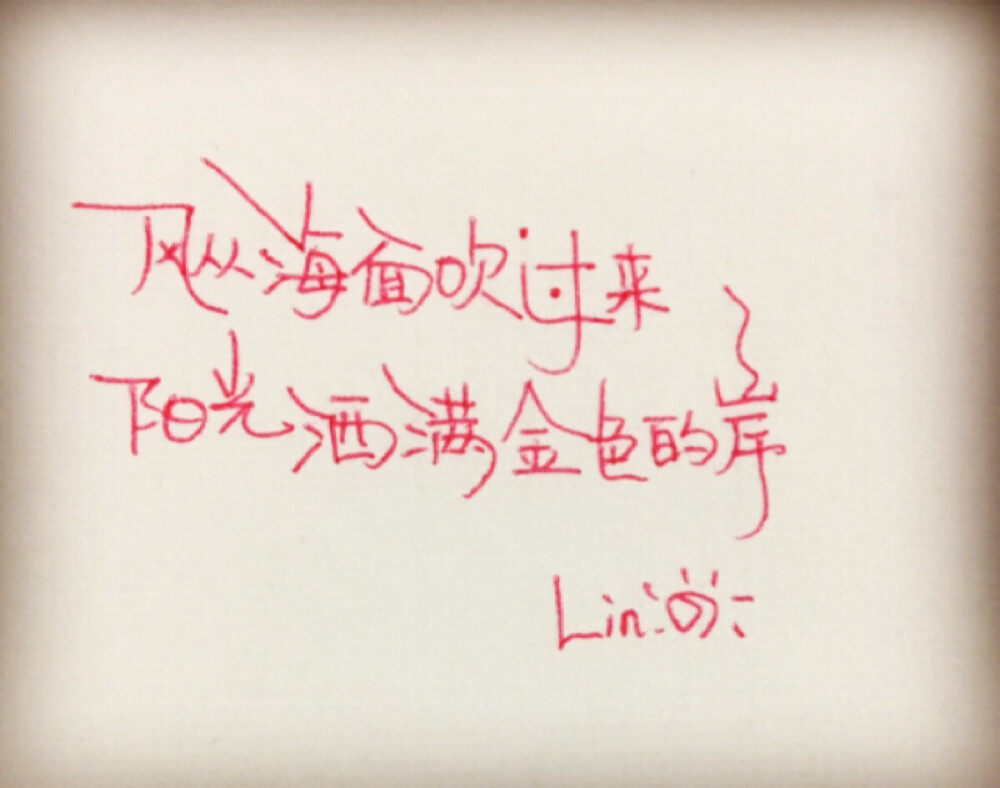 风从海面吹过来
阳光洒满金色的岸
Lin